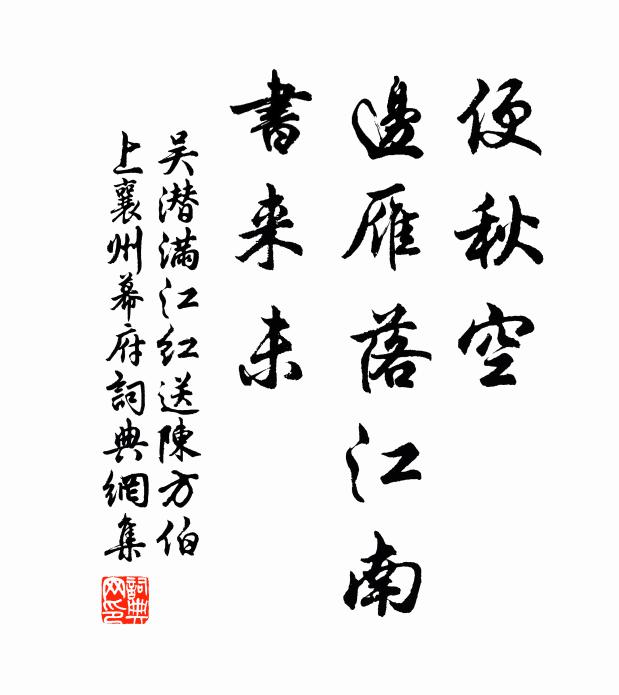 便秋空
邊雁落江南
書来未
吴潜滿江红送陳方伯
上襄州幕府詞典網集
詞典
网印